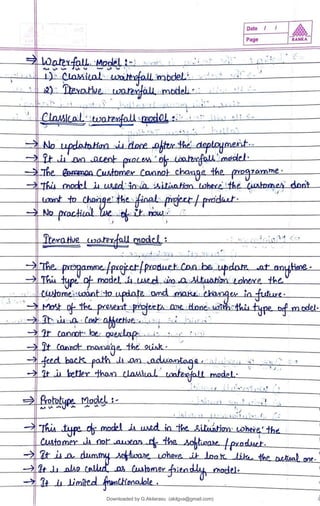 Date / /
Page
RANKA
⇒ Waterfall Model :-
1) Classical waterfall model.
2) Iterative waterfall model.
Classical waterfall model :
→ No updatation is done after the deployment.
→ It is an process of waterfall model.
→ The Customer cannot change the programme.
→ This model is used in a situation where the customer dont
want to change the final project / product.
→ No practical use of it now.
Iterative waterfall model :
→ The programme/project/product can be update at anytime.
→ This type of model is used in a situation where the
Customer want to update and make changes in future.
→ Most of the present projects are done with this type of model.
→ It is a Cost affective
→ It cannot be overlap.
→ It cannot manage the risk.
→ feed back path is an advantage.
→ It is better than classical waterfall model.
⇒ Prototype Model :-
→ This type of model is used in the situation where the
Customer is not of the software / product.
→ It is a dummy software where it look like the actual one.
→ It is also called as Customer friendly model.
→ It is limited functionable.
Downloaded by G.Aktarasu (aktgvis@gmail.com)